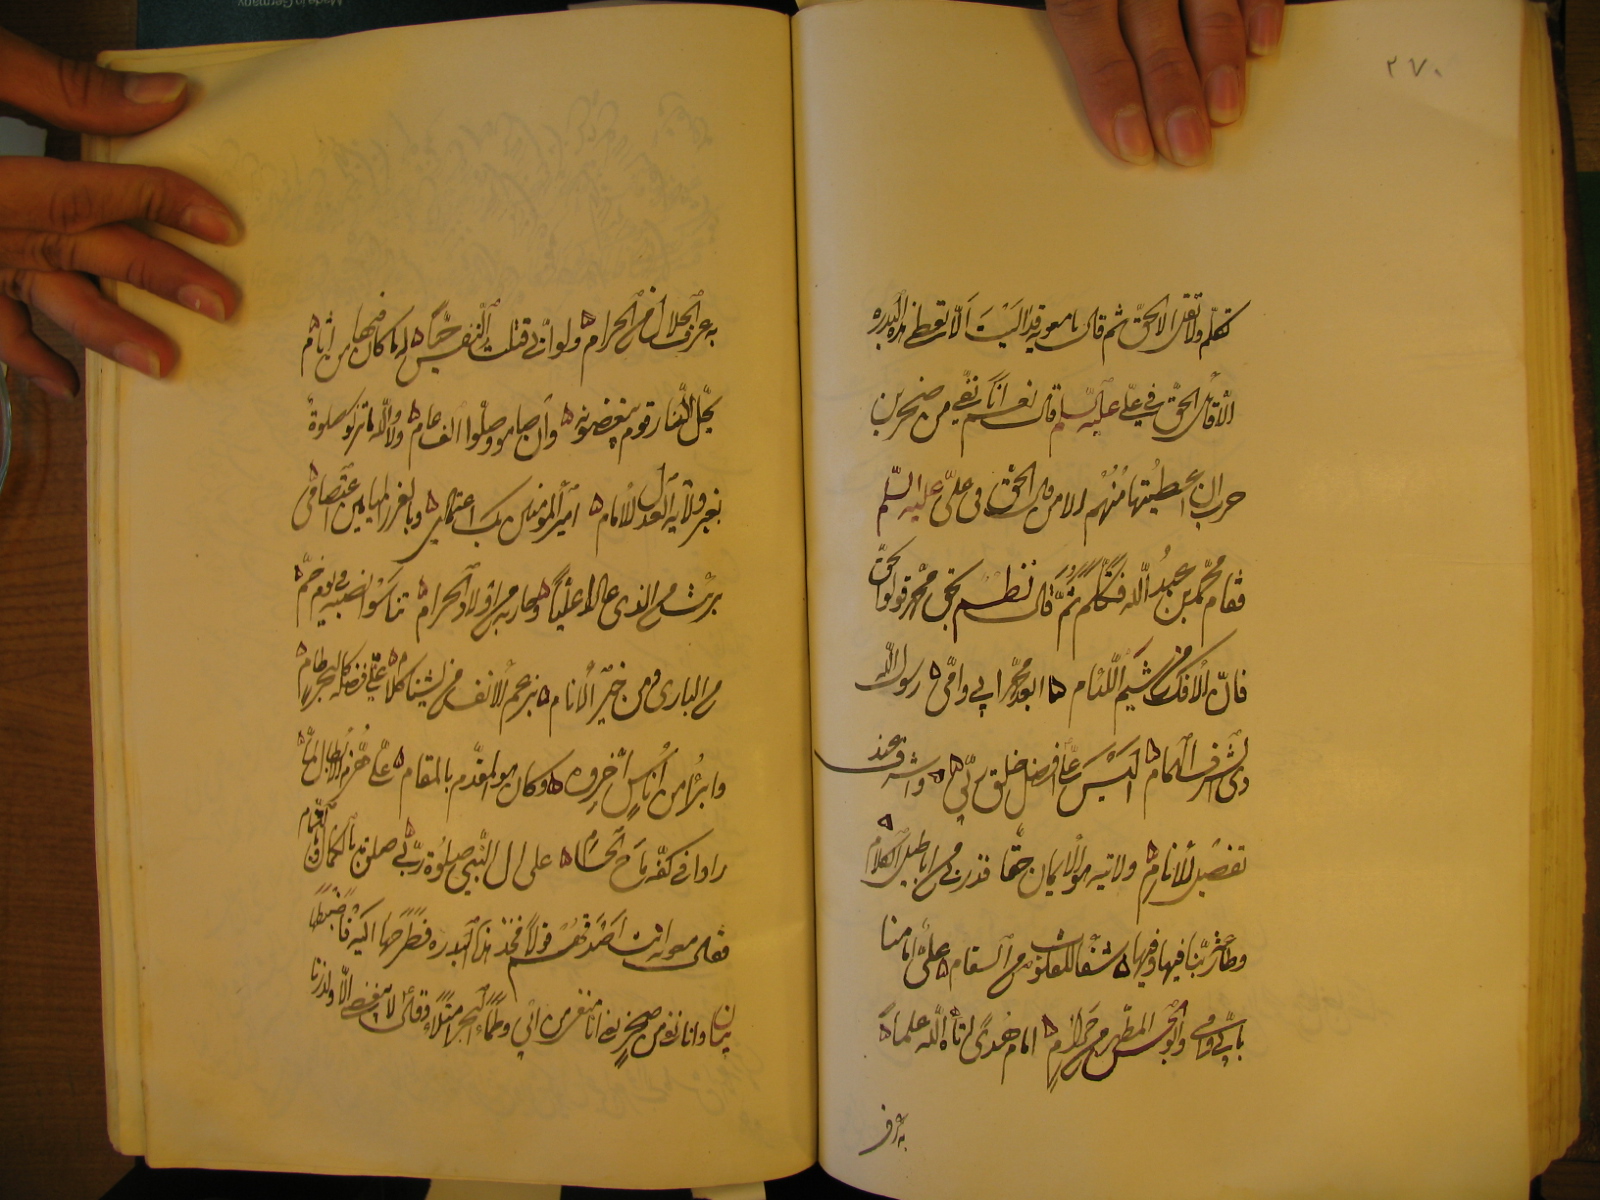 ٢٧٠
تكلم ولا تقل الا الحق ثم قال يا معويه قد اليت الا تعطي هذه البدره
الا قائل الحق في علي عليه السلم قال نعم انا نفي من صخر بن
حرب ان اعطيتها منهم الا من قال الحق في علي عليه السلم
فقام محمد بن عبد الله فتكلم ثم قال نظم بحق محمد قولوا بحق
فان الافك من شيم اللئام ابعد محمد ابي وامي رسول الله
ذي الشرف الهمام اليس علي افضل خلق ربي واشرف عند
تفضيل الانام ولايته هو الايمان حقا فذرني من اباطيل الكلام
وطاعة ربنا فيها وفيها شفا للقلوب من السقام علي امامنا
بابي وامي وابو الحسن المطهر من حرام امام هدى اتاه الله علما
به عرف
به عرف الحلال من الحرام ولو اني قتلت النفس حبا له ما كان فيها من اثام
يحل النار قوم يبغضونه وان صاموا وصلوا الف عام ولا والله ما تزكو صلوة
بغير ولاية العدل الامام امير المؤمنين بك اعتمادي وبالغرر الميامين اعتصامي
برئت من الذي عادا عليا وحاربه من اولاد الحرام تناسوا نصبه في يوم خم
من الباري ومن خير الانام برغم الانف من يشنا كلامي علي فضله كالبحر طام
وابرا من اناس اخروه وكان هو المقدم بالمقام علي هزم الابطال لما
راوا في كفه ماح الحسام على ال النبي صلوة ربي صلوة بالكمال وبالتمام
فقال معويه انت اصدقهم قولا فخذ هذه البدره